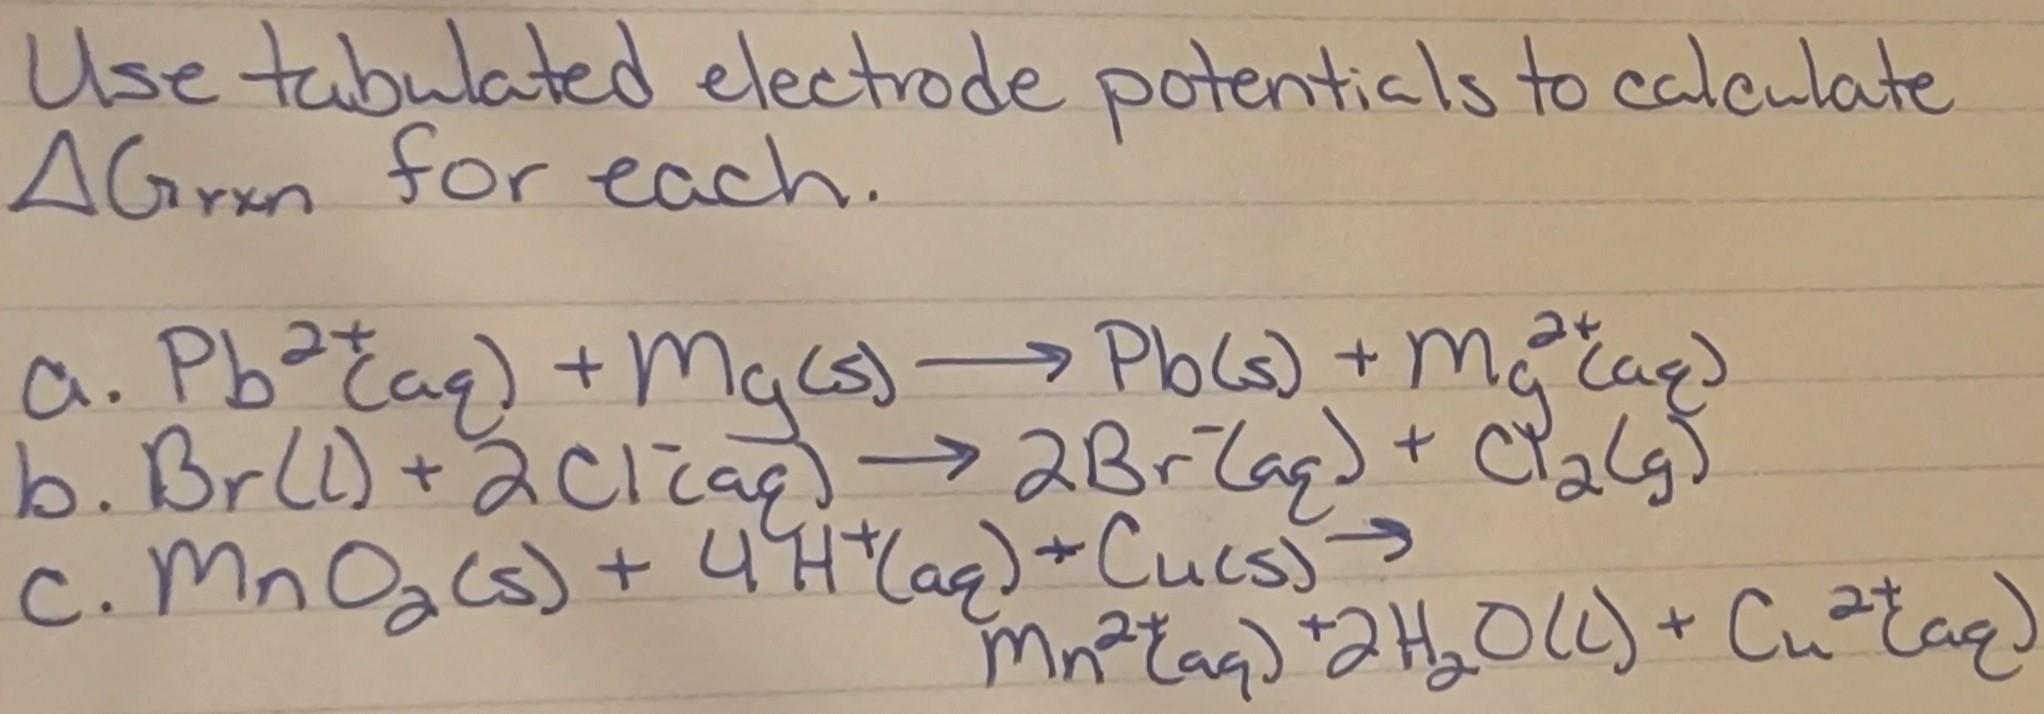 Use tabulated electrode potentials to calculate
ΔGrxn for each.
a. Pb²⁺(aq) + Mg(s) → Pb(s) + Mg²⁺(aq)
b. Br(l) + 2Cl⁻(aq) → 2Br⁻(aq) + Cl₂(g)
c. MnO₂(s) + 4H⁺(aq) + Cu(s) →
Mn²⁺(aq) + 2H₂O(l) + Cu²⁺(aq)